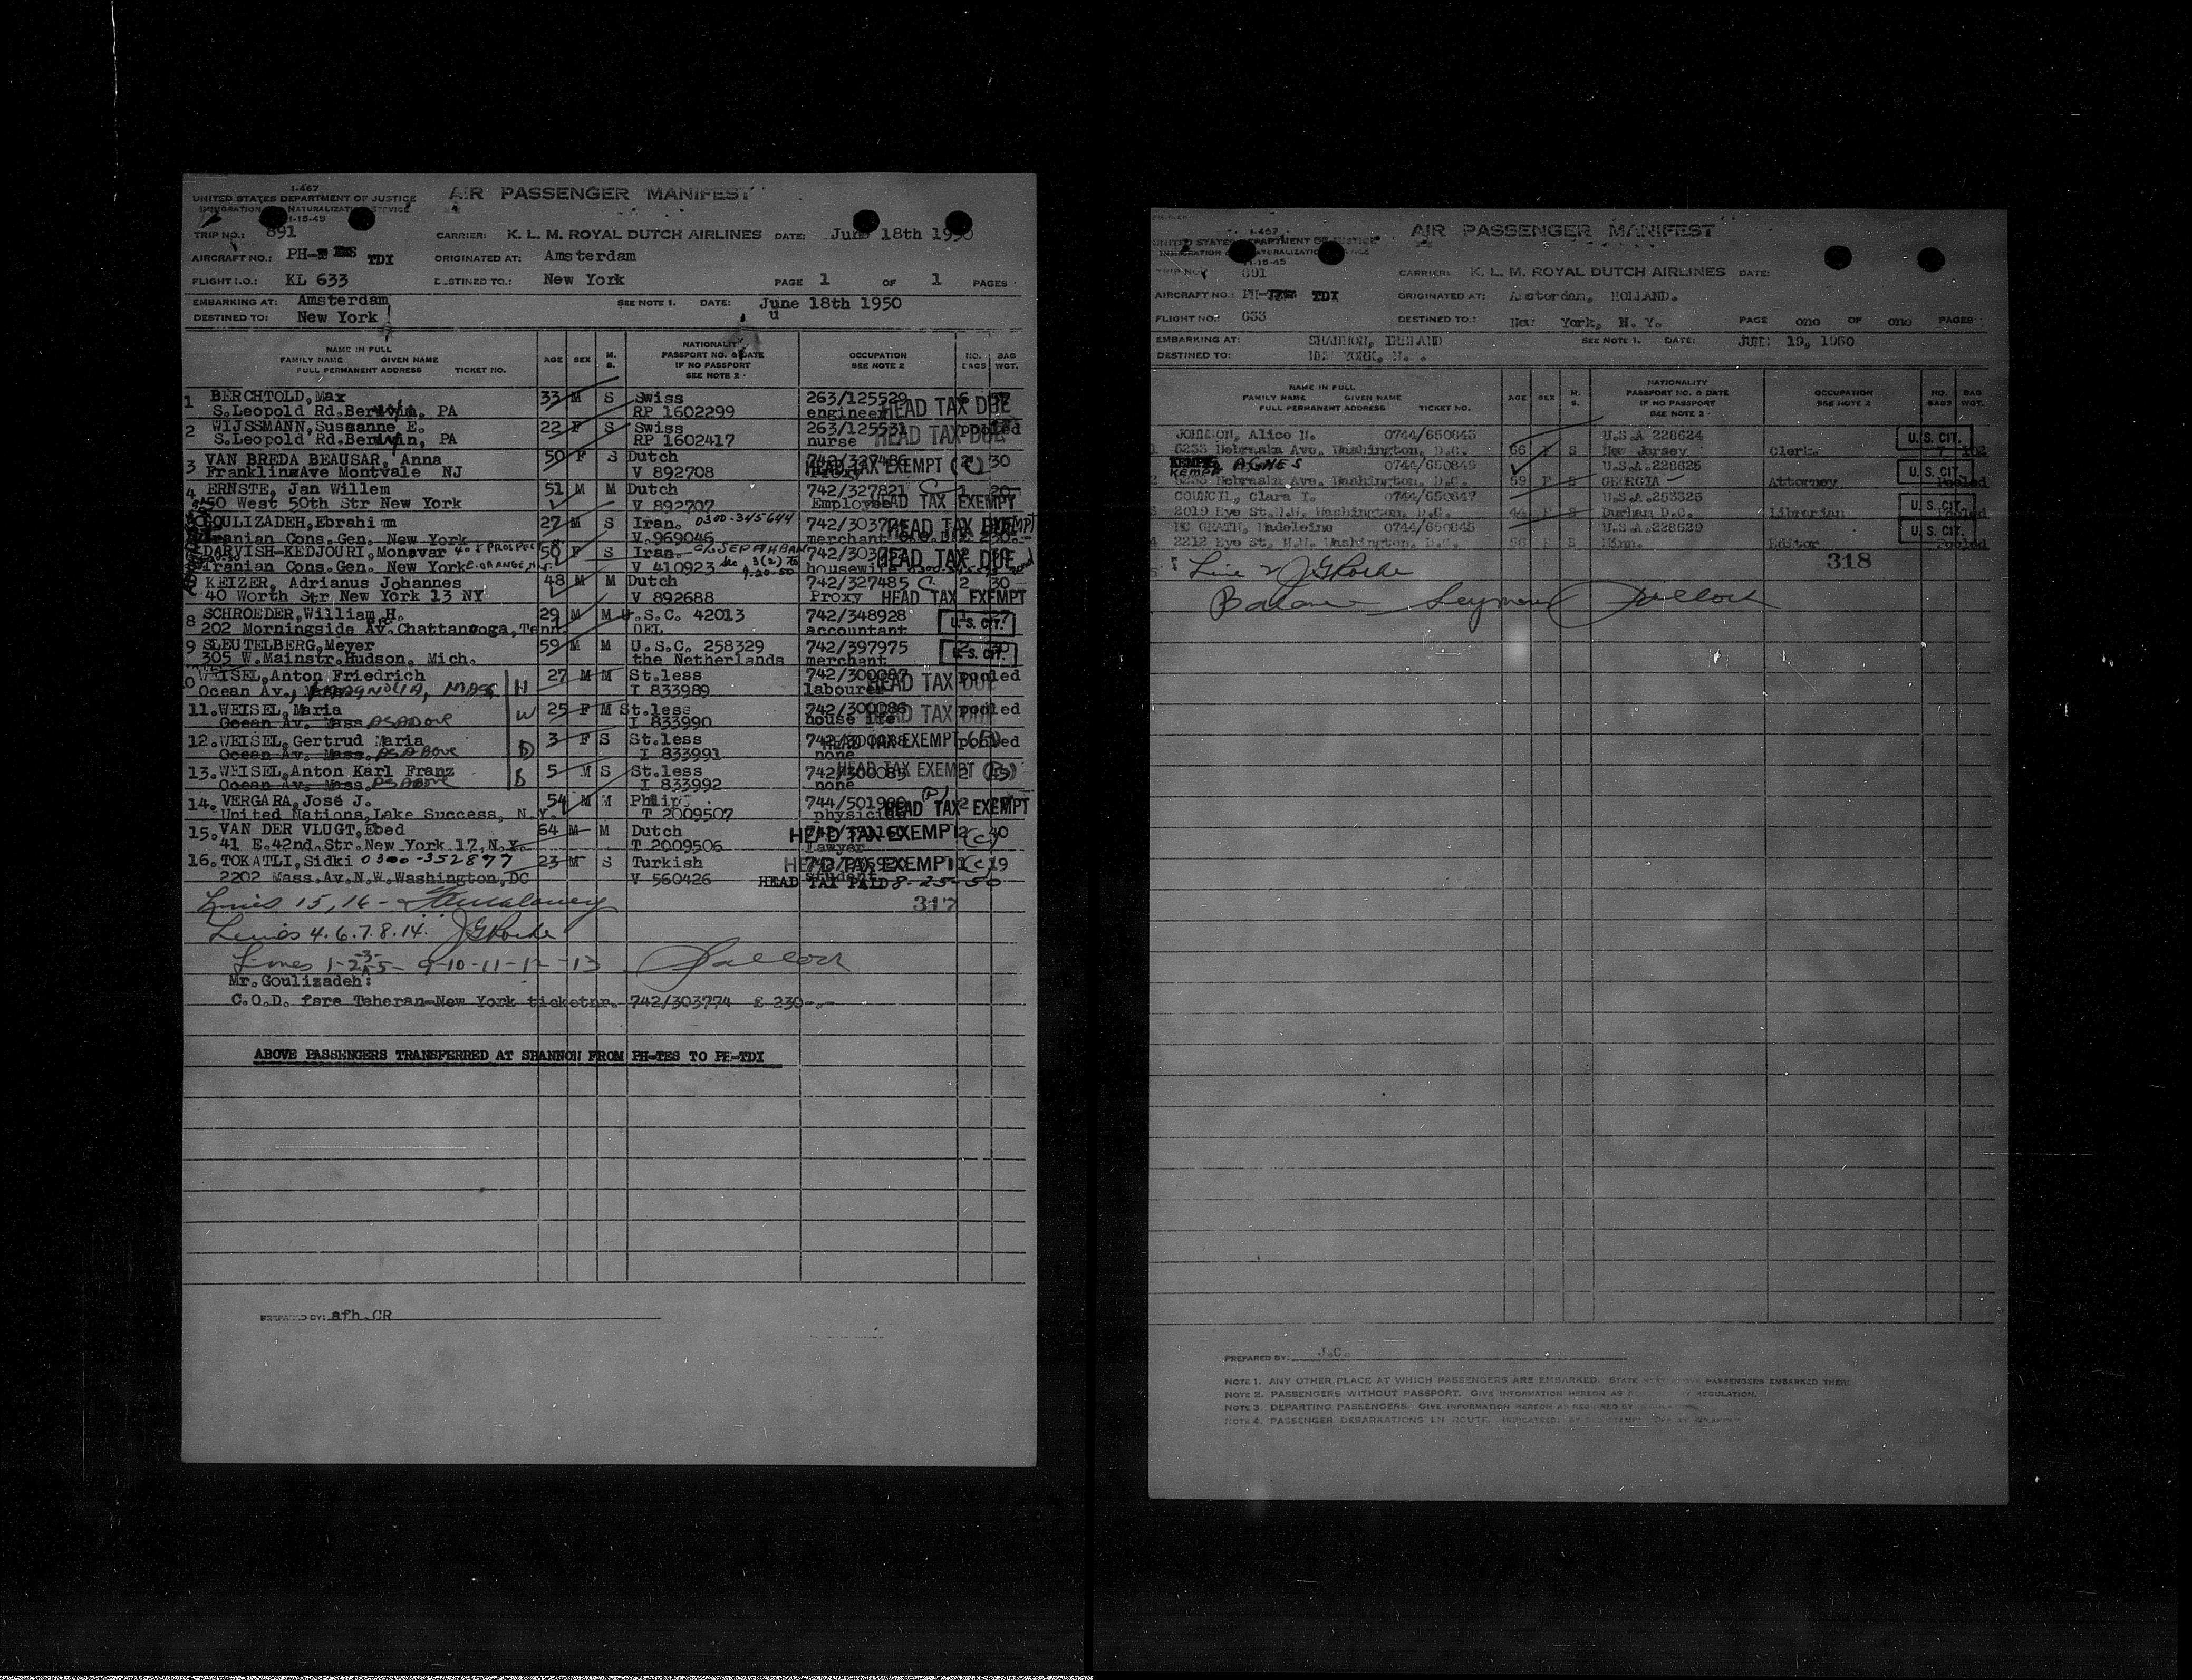 I-467
UNITED STATES DEPARTMENT OF JUSTICE
AIR PASSENGER MANIFEST
TRIP NO.: 891 CARRIER: K. L. M. ROYAL DUTCH AIRLINES DATE: June 18th 1950
AIRCRAFT NO.: PH- TDI ORIGINATED AT: Amsterdam
FLIGHT NO.: KL 633 DESTINED TO.: New York PAGE 1 OF 1 PAGES
EMBARKING AT: Amsterdam SEE NOTE 1. DATE: June 18th 1950
DESTINED TO: New York
NAME IN FULL
FAMILY NAME GIVEN NAME
FULL PERMANENT ADDRESS TICKET NO.
AGE SEX M. S.
NATIONALITY
PASSPORT NO. & DATE
IF NO PASSPORT
SEE NOTE 2
OCCUPATION
SEE NOTE 2
NO. BAGS
BAG WGT.
1 BERCHTOLD, Max 33 M S Swiss 263/125529 HEAD TAX DUE
S.Leopold Rd. PA RP 1602299 engineer
2 WIJSSMANN, Sussanne E. 22 F S Swiss 263/125531 pooled
S.Leopold Rd. PA RP 1602417 nurse HEAD TAX DUE
3 VAN BREDA BEAUSAR, Anna 50 F S Dutch HEAD TAX EXEMPT (C) 30
FranklinsAve Montvale NJ V 892708
4 ERNSTE, Jan Willem 51 M M Dutch 742/327821 C
50 West 50th Str New York V 892707 Employee HEAD TAX EXEMPT
GOULIZADEH, Ebrahim 27 M S Iran. 0300-345644 HEAD TAX
Iranian Cons.Gen. New York V.969046 merchant
DARVISH-KEDJOURI, Monavar 50 F S Iran. HEAD TAX DUE
Iranian Cons.Gen. New York V 410923 housewife
KEIZER, Adrianus Johannes 48 M M Dutch 742/327485 C 2 30
40 Worth Str New York 13 NY V 892688 Proxy HEAD TAX EXEMPT
8 SCHROEDER, William H. 29 M M U.S.C. 42013 742/348928 U.S. CIT.
202 Morningside Av. Chattanooga, Tenn. DEL accountant
9 SLEUTELBERG, Meyer 59 M M U.S.C. 258329 742/397975 U.S. CIT.
305 W.Mainstr.Hudson, Mich. the Netherlands merchant
WEISEL, Anton Friedrich H 27 M M St.less 742/300087 pooled
Ocean Av., MAGNOLIA, MASS I 833989 labourer HEAD TAX DUE
11. WEISEL, Maria W 25 F M St.less 742/300086 pooled
Ocean Av. Mass AS ABOVE I 833990 HEAD TAX DUE
12. WEISEL, Gertrud Maria D 3 F S St.less HEAD TAX EXEMPT pooled
Ocean Av. Mass. AS ABOVE I 833991 none
13. WEISEL, Anton Karl Franz 5 M S St.less 742/300085 HEAD TAX EXEMPT
Ocean Av. Mass. AS ABOVE I 833992 none
14. VERGARA, José J. 54 M M Philip. HEAD TAX EXEMPT
United Nations, Lake Success, N.Y. T 2009507 physician
15. VAN DER VLUGT, Ebed 64 M M Dutch HEAD TAX EXEMPT (C) 40
41 E.42nd.Str.New York 17, N.Y. T 2009506 Lawyer
16. TOKATLI, Sidki 0300-352877 23 M S Turkish HEAD TAX EXEMPT (C) 19
2202 Mass.Av.N.W.Washington, DC V 560426 student HEAD TAX PAID 8-25-50
Lines 15, 16 -
317
Lines 4.6.7.8.14. J G Roche
Lines 1-2-3-5- 9-10-11-12-13
Mr. Goulizadeh:
C.O.D. fare Teheran-New York ticketnr. 742/303774 £ 230-.-
ABOVE PASSENGERS TRANSFERRED AT SHANNON FROM PH-TES TO PH-TDI
PREPARED BY: afh.CR
I-467
AIR PASSENGER MANIFEST
TRIP NO. 891 CARRIER: K. L. M. ROYAL DUTCH AIRLINES DATE:
AIRCRAFT NO.: PH- TDI ORIGINATED AT: Amsterdam, HOLLAND.
FLIGHT NO.: 633 DESTINED TO.: New York, N. Y. PAGE one OF one PAGES
EMBARKING AT: SHANNON, IRELAND SEE NOTE 1. DATE: JUNE 19, 1950
DESTINED TO: NEW YORK, N. Y.
NAME IN FULL
FAMILY NAME GIVEN NAME
FULL PERMANENT ADDRESS TICKET NO.
AGE SEX M. S.
NATIONALITY
PASSPORT NO. & DATE
IF NO PASSPORT
SEE NOTE 2
OCCUPATION
SEE NOTE 2
NO. BAGS
BAG WGT.
JOHNSON, Alice N. 0744/650843 U.S.A 228624 U.S. CIT.
5233 Nebraska Ave. Washington, D.C. 66 F S New Jersey Clerk.
KEMPE AGNES 0744/650849 U.S.A.228625 U.S. CIT.
Nebraska Ave. Washington, D.C. 59 F S GEORGIA Attorney Pooled
COUNCIL, Clara I. 0744/650847 U.S.A.253325 U.S. CIT.
2019 Eye St.N.W. Washington, D.C. 44 F S Durham D.C. Librarian Pooled
MC GRATH, Madeleine 0744/650848 U.S.A.228629 U.S. CIT.
2212 Eye St, N.W. Washington, D.C. 56 F S Minn. Editor Pooled
318
Line 2 J G Roche
Balance Seymour
PREPARED BY: J.C.
NOTE 1. ANY OTHER PLACE AT WHICH PASSENGERS ARE EMBARKED. STATE PASSENGERS EMBARKED THERE
NOTE 2. PASSENGERS WITHOUT PASSPORT. GIVE INFORMATION HEREON AS REGULATION.
NOTE 3. DEPARTING PASSENGERS. GIVE INFORMATION HEREON AS REQUIRED BY
NOTE 4. PASSENGER DEBARKATIONS EN ROUTE.